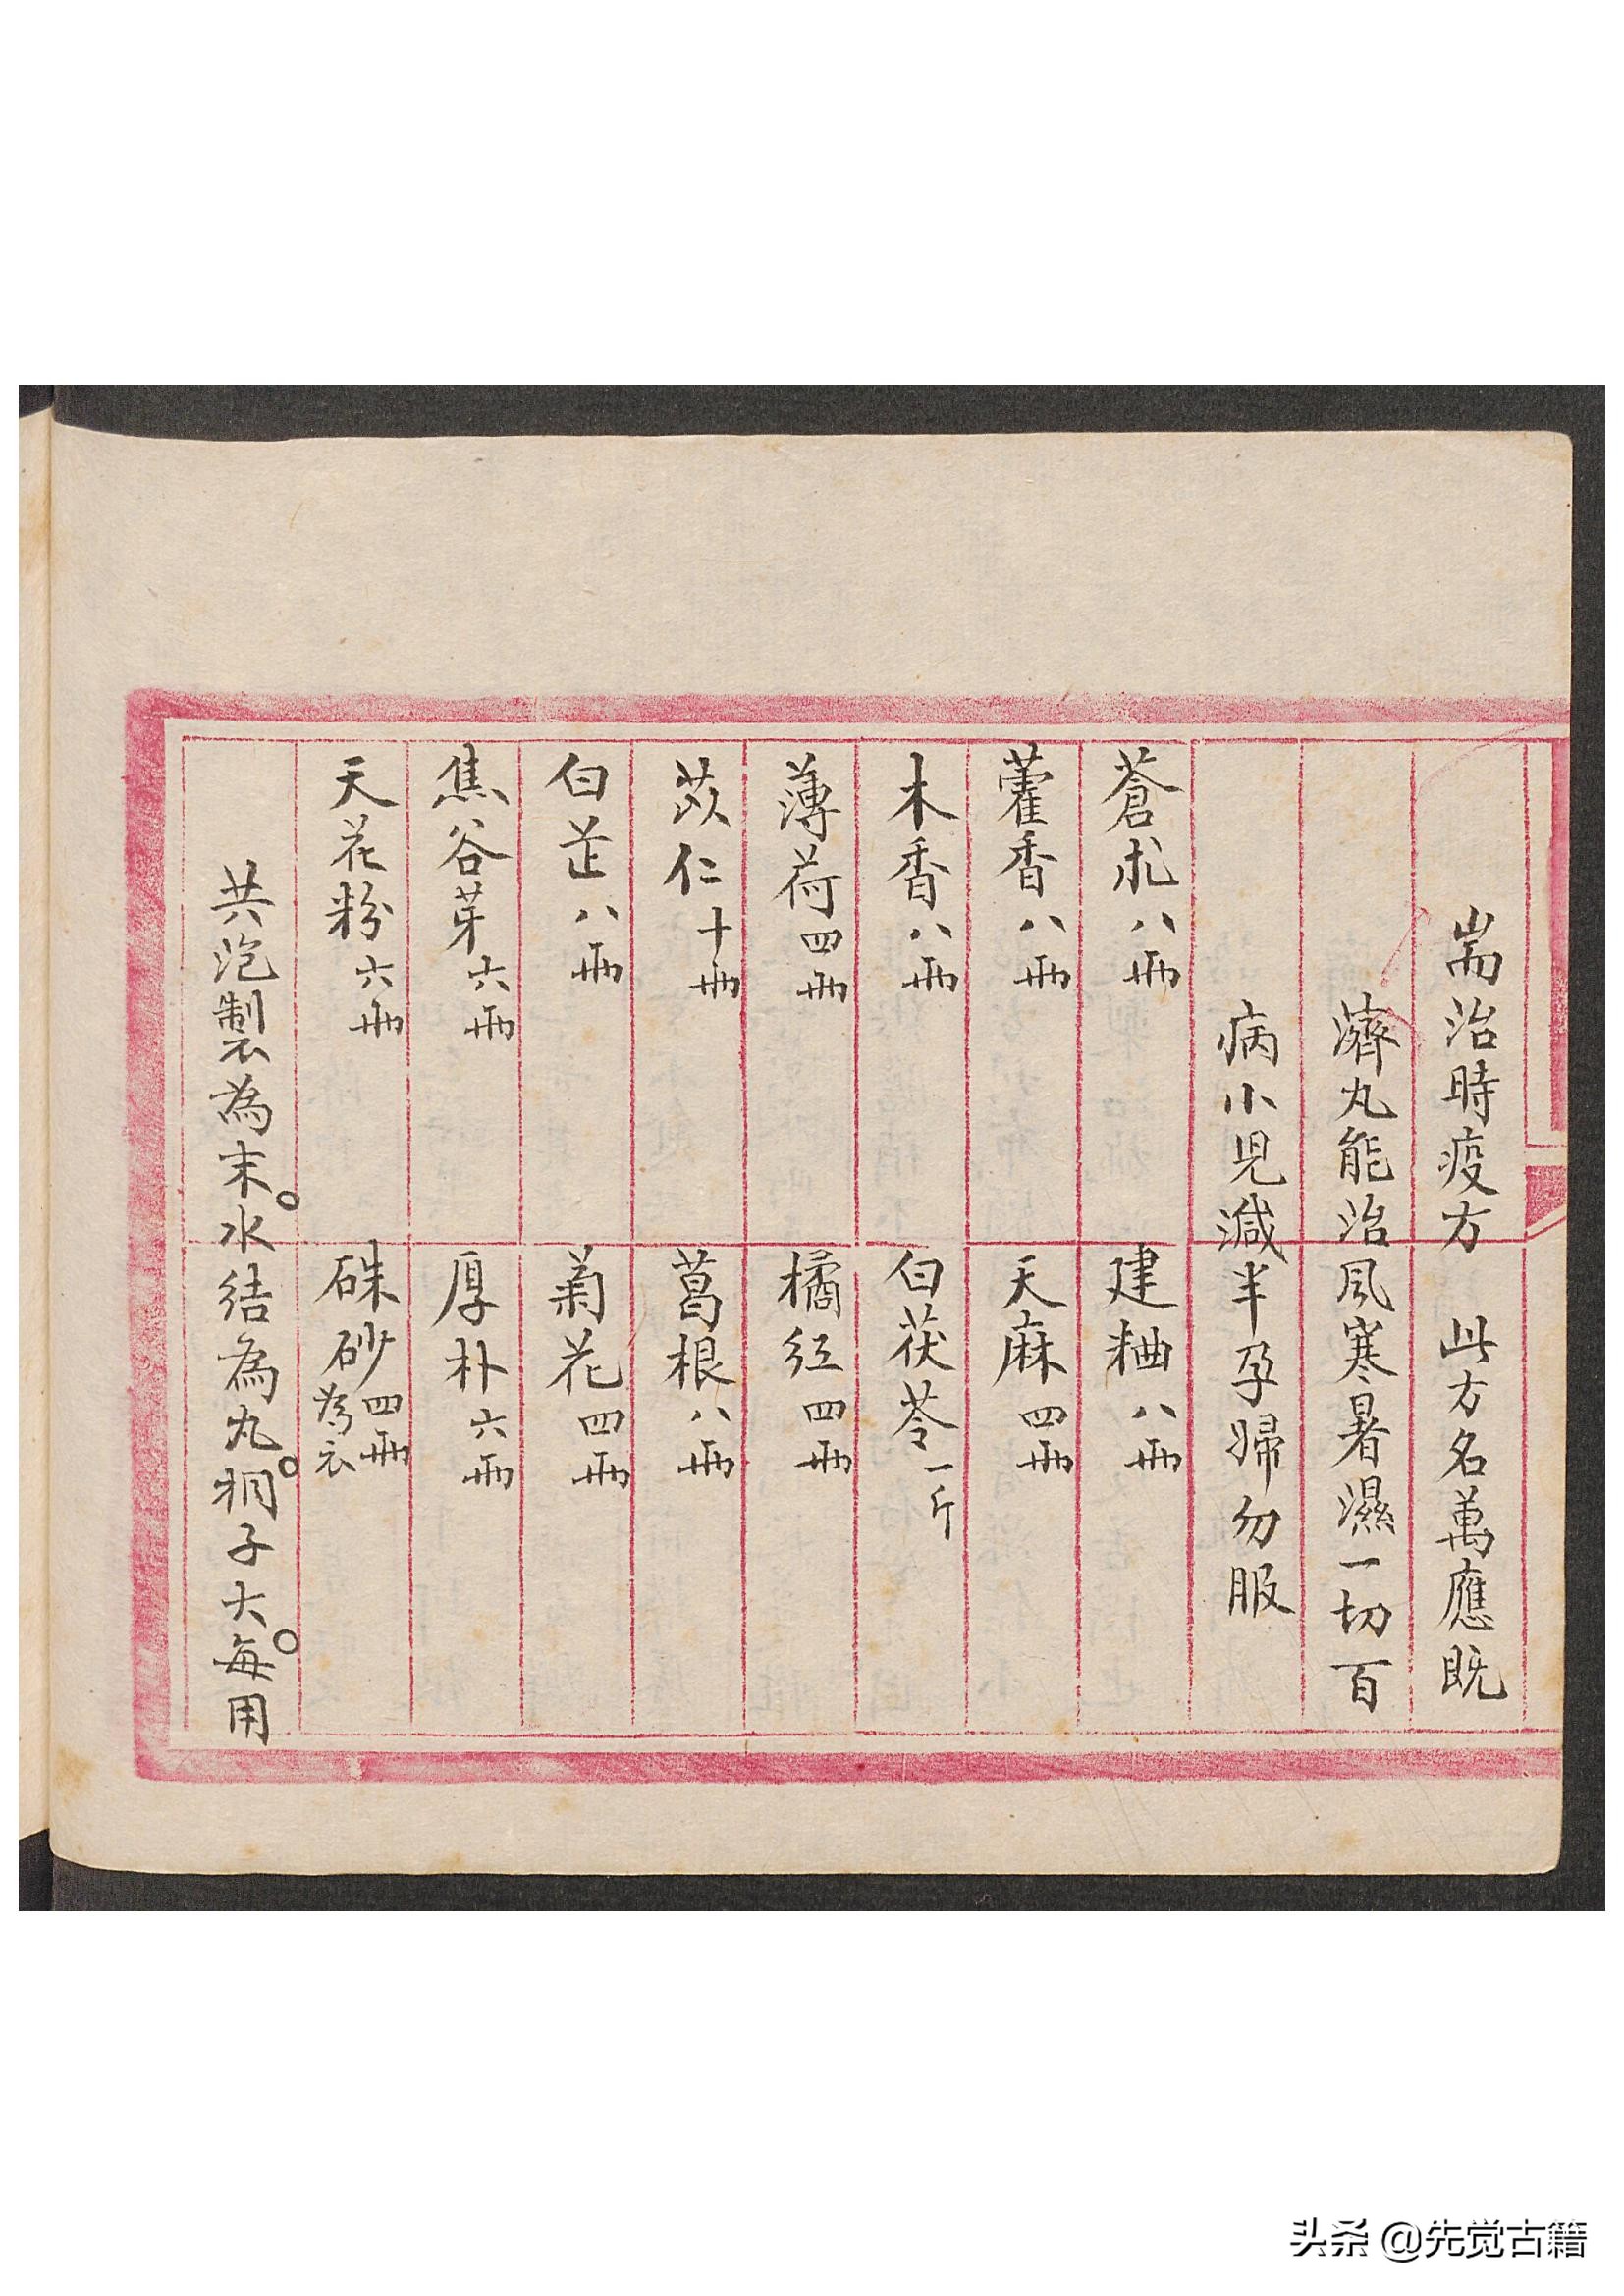 耑治時疫方　此方名萬應既
濟丸能治風寒暑濕一切百
病小児減半孕婦勿服
蒼朮八兩　建粬八兩
藿香八兩　天麻四兩
木香八兩　白茯苓一斤
薄荷四兩　橘红四兩
苡仁十兩　葛根八兩
白芷八兩　菊花四兩
焦谷芽六兩　厚朴六兩
天花粉六兩　硃砂四兩為衣
共泡製為末。水结為丸。桐子大。每用
头条 @先觉古籍